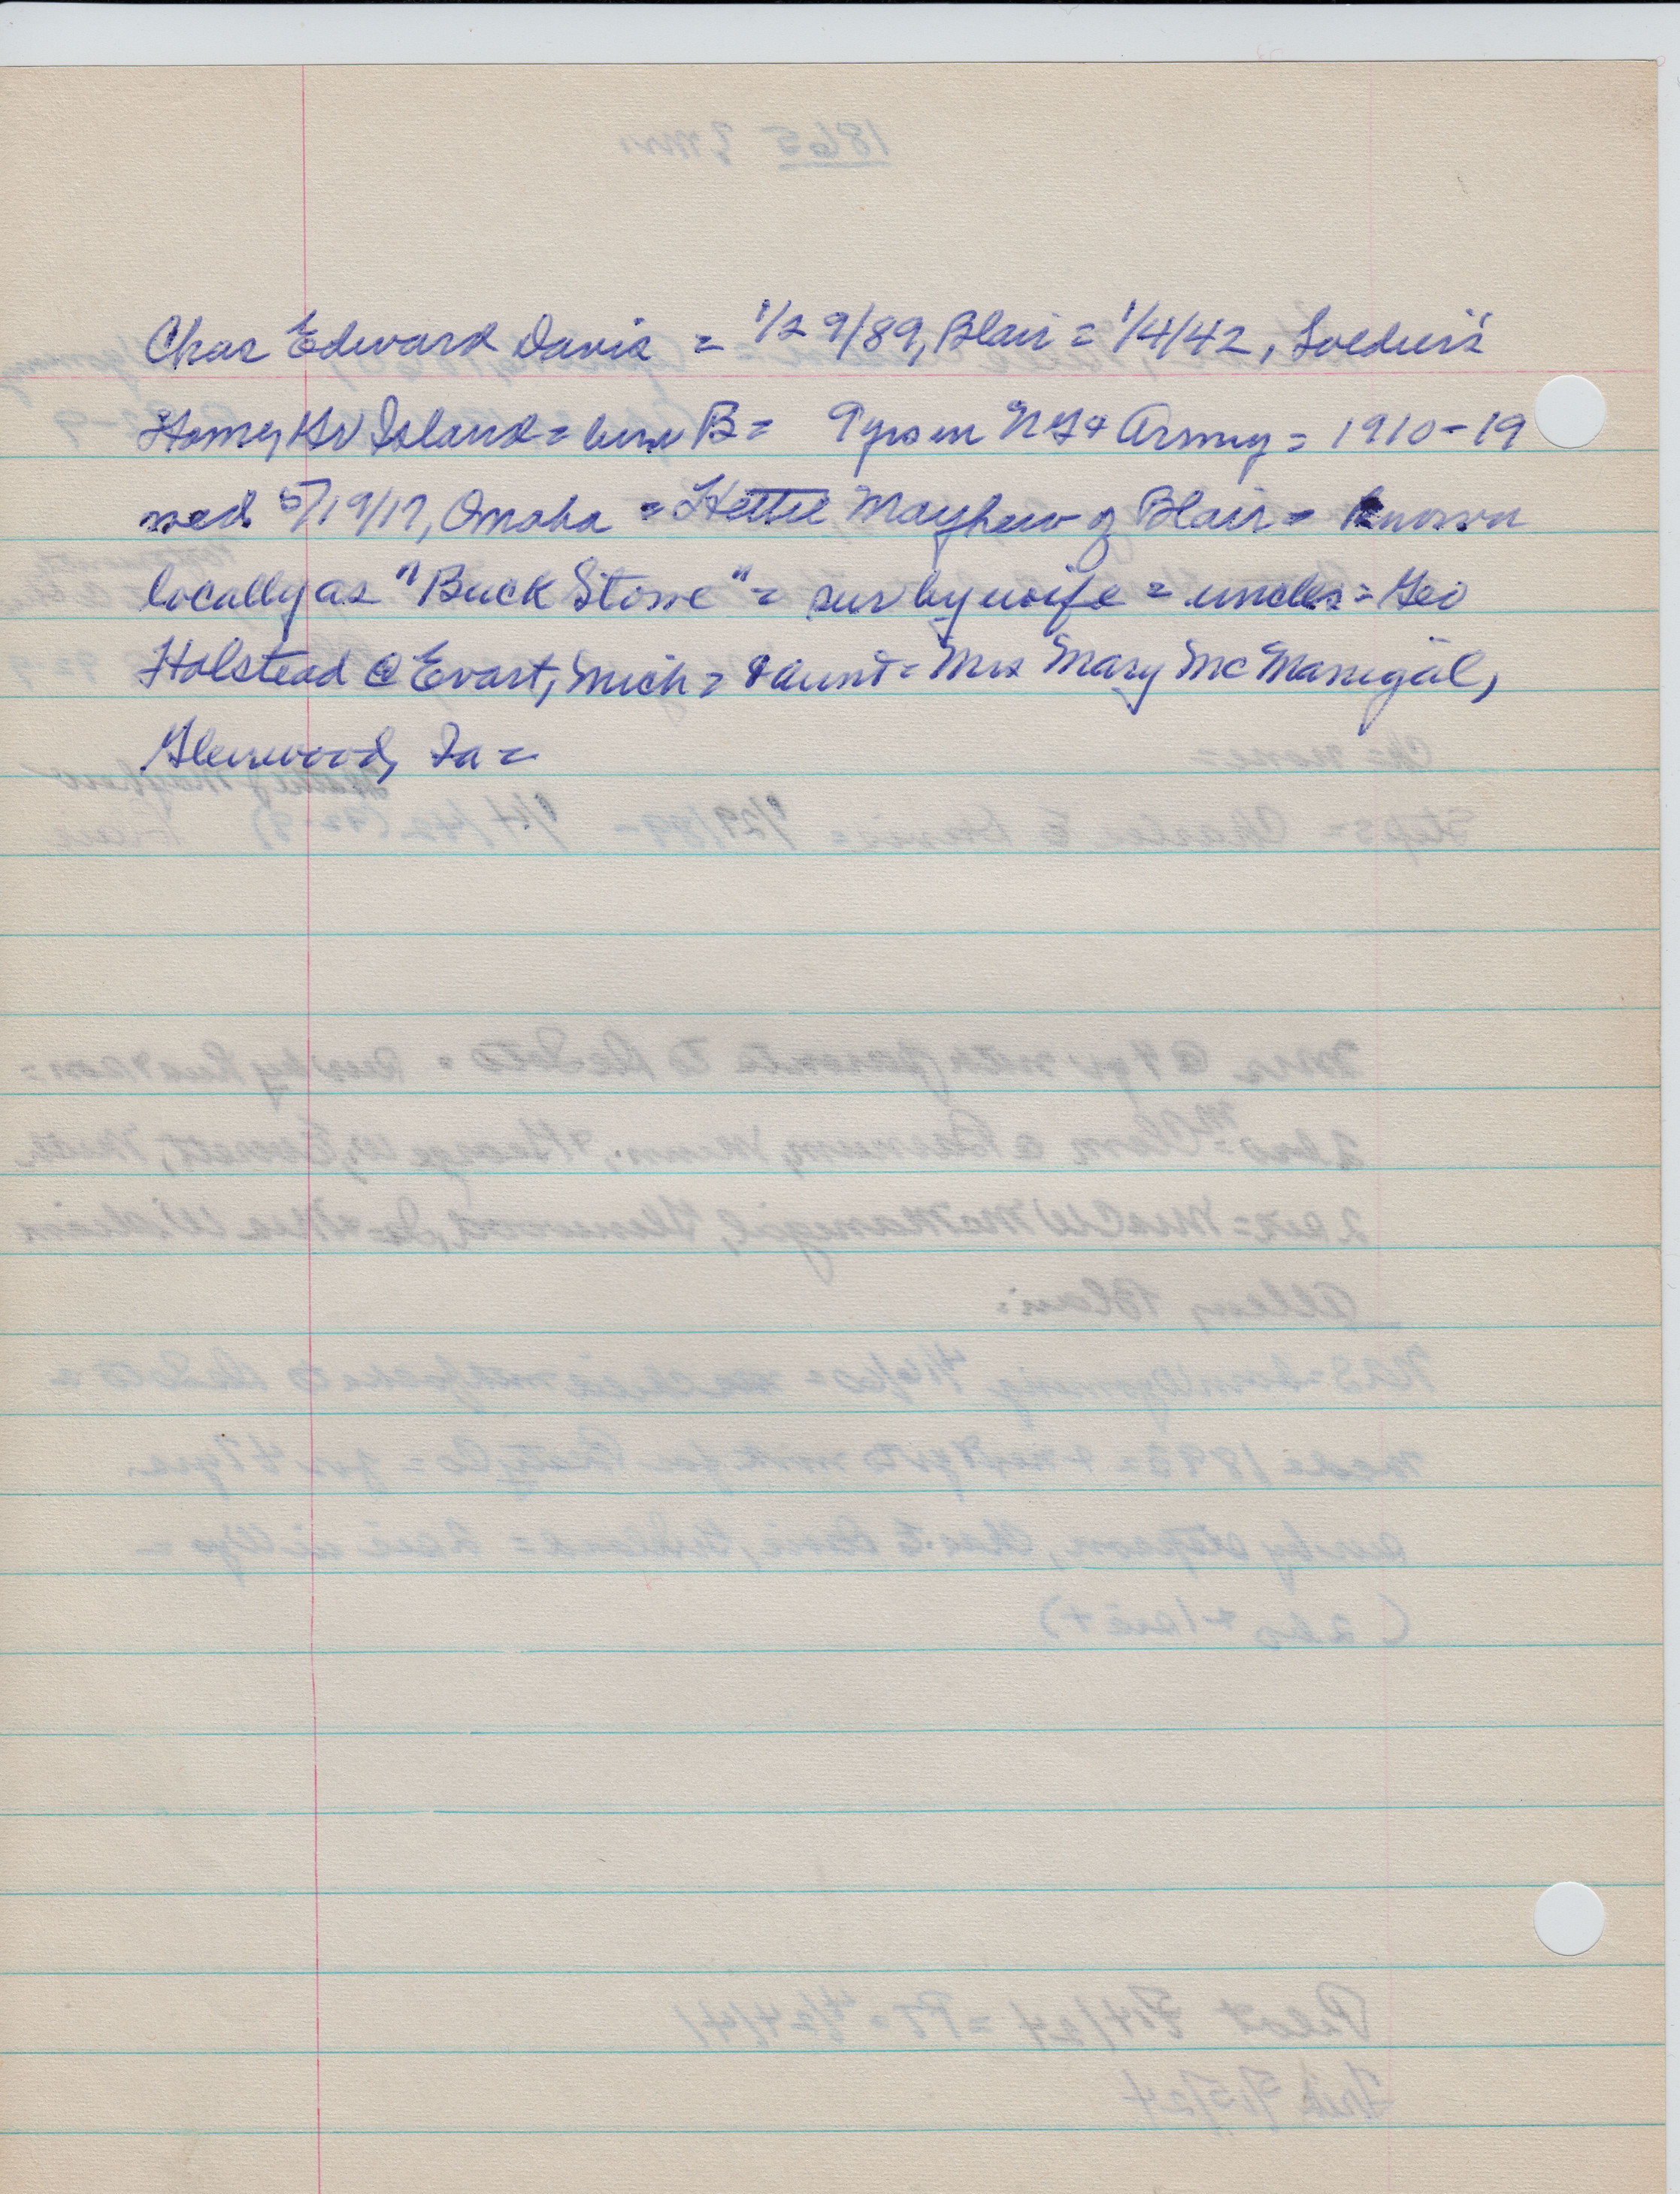 Chas Edward Davis = 1/29/89, Blair = 1/4/42, Soldier's
Home, Gr Island = bur B = 9 yrs in NG & Army = 1910-19
med 5/19/17, Omaha = Hettie Mayhew of Blair = known
locally as "Buck Stone" = sur by wife = uncles = Geo
Holstead @ Evart, Mich = & aunt = Mrs Mary McManigal,
Glenwood, Ia =